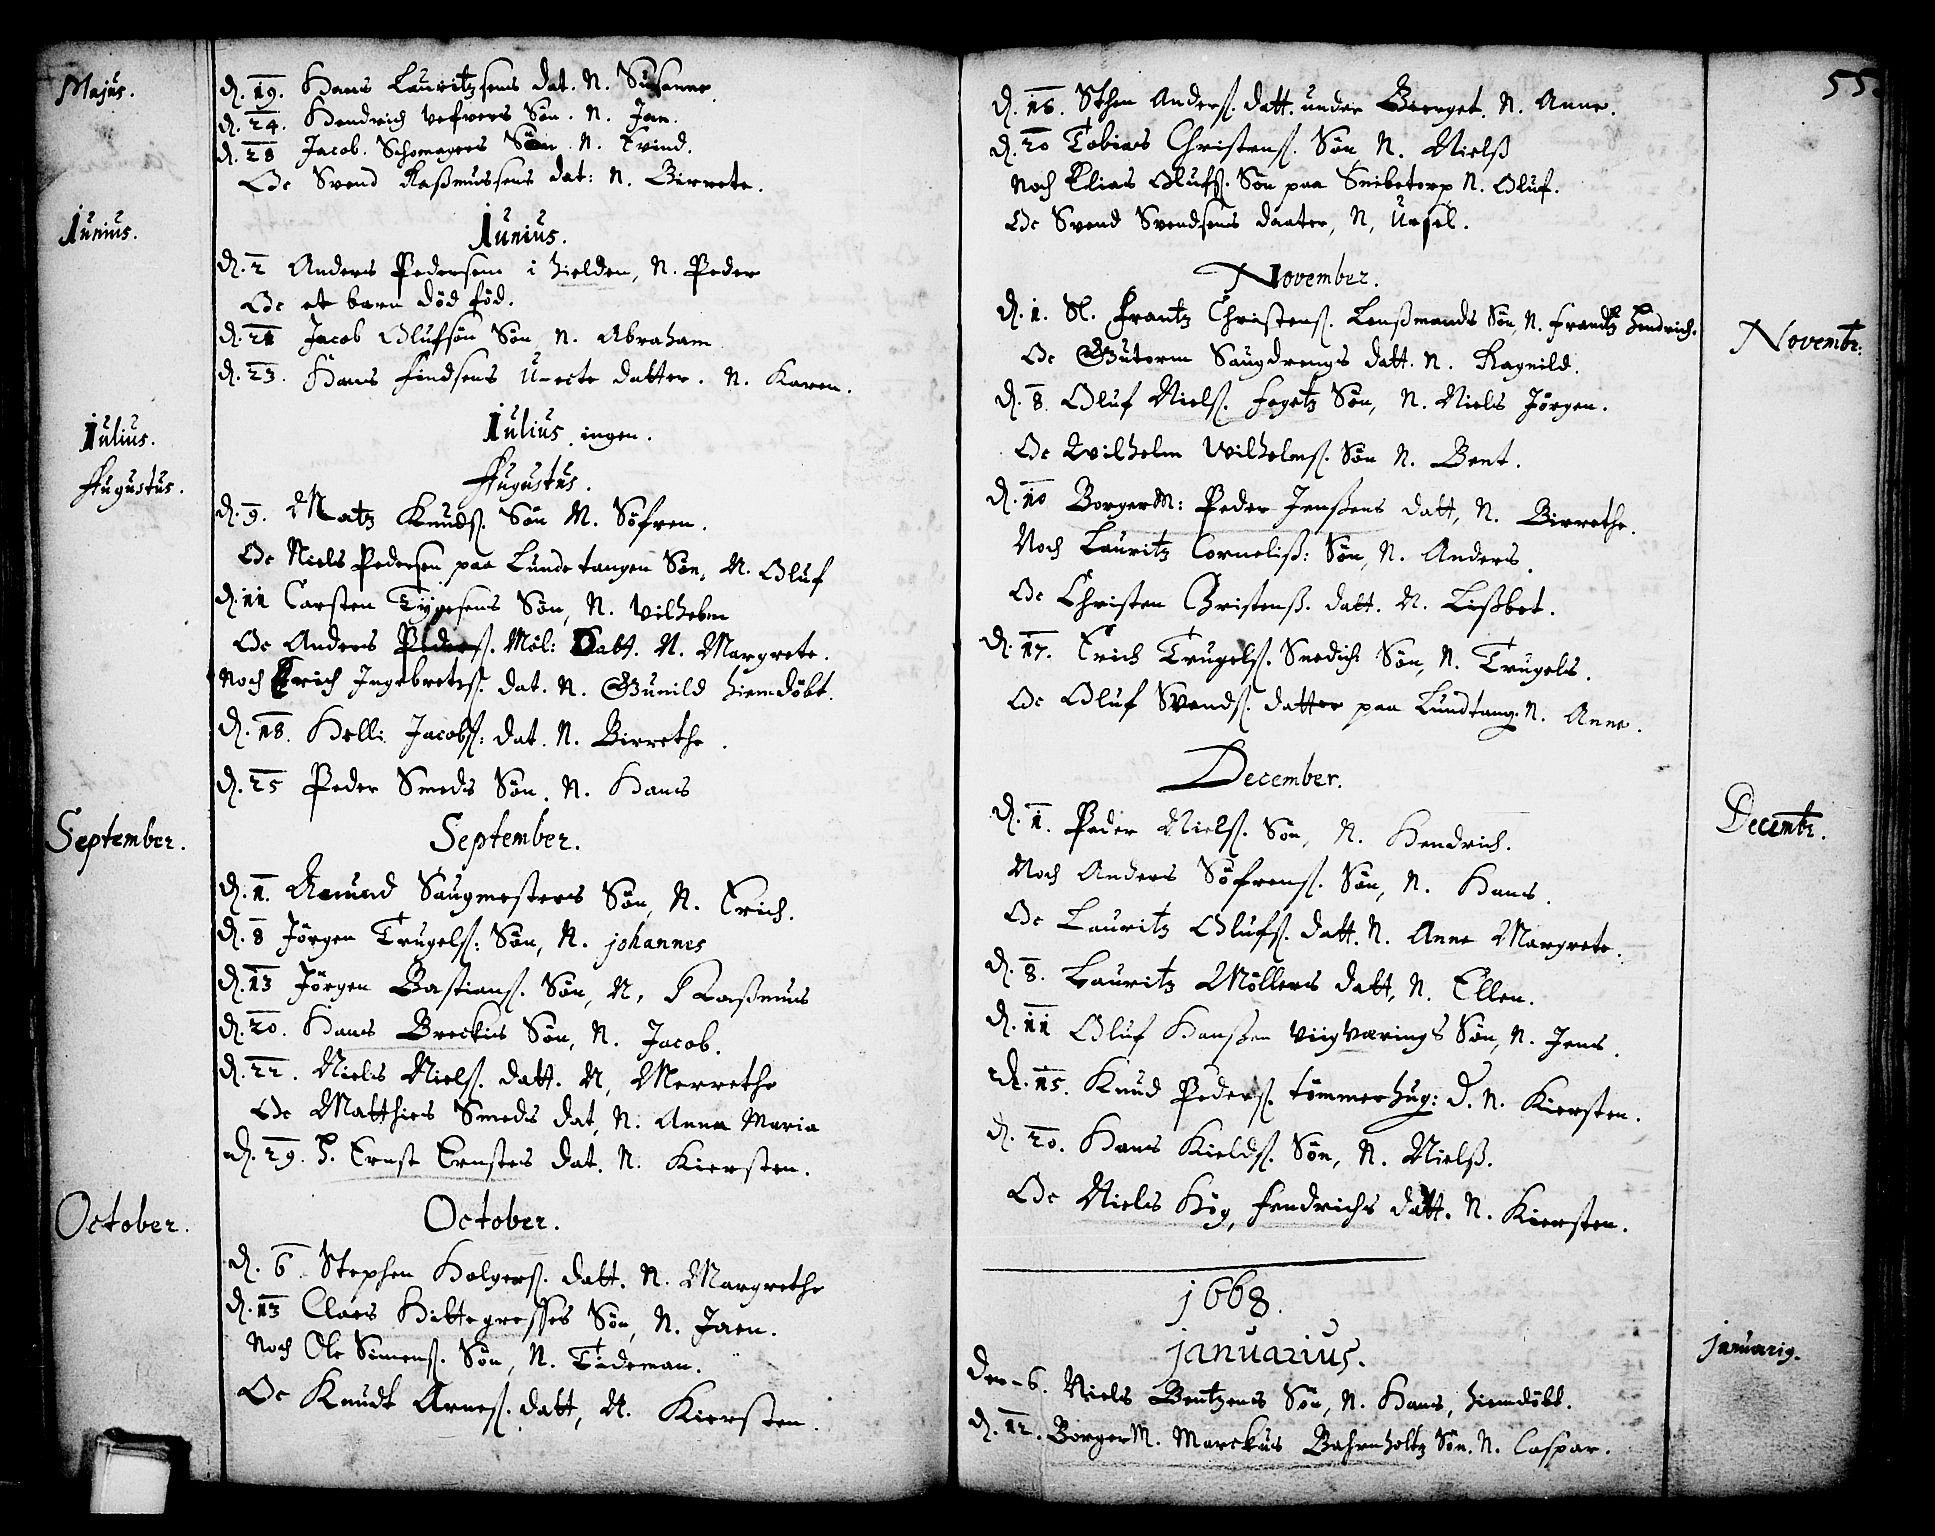 Majus.
d. 19. Hans Lauritzsens dat. N. Susanne.
d. 24. Hendrich Vefvers Søn. N. Jan.
d. 28 Jacob Schomagers Søn N. Evind.
Oc Svend Rasmussens dat: N. Birrete.
Iunius.
Iunius.
d. 2 Anders Pedersens i hielden, N. Peder
Oc et barn død fød.
d. 21 Jacob Olufsøn Søn N. Abraham
d. 23. Hans Findsens U-ecte datter. N. Karen.
Iulius.
Iulius. ingen.
Augustus.
Augustus.
d. 9. Matz Knuds. Søn N. Søfren.
Oc Niels Pedersen paa Lundetangen Søn, N. Oluf
d. 11 Carsten Tygesens Søn, N. Vilhelm
Oc Anders Peders. Møl: Datt. N. Margrete.
Noch Erich Ingebrets. dat. N. Gunild hiemdøbt.
d. 18. Helli Jacobs: dat. N. Birrethe.
d. 25 Peder Smeds Søn. N. Hans
September.
September.
d. 1. Amund Saugmesters Søn, N. Erich.
d. 8 Jørgen Trugels: Søn, N. johannes
d. 13 Jørgen Bastians. Søn, N. Rasmus
d. 20. Hans Breckis Søn, N. Jacob.
d. 22. Niels Niels. datt. N, Merrethe
Oc Matthies Smeds dat, N. Anna Maria
d. 29. H. Ernst Ernstes dat. N. Kiersten.
October.
October.
d. 6 Stephen Holgers. datt. N. Margrethe
d. 13 Claes Hittegresses Søn, N. Jaen.
Noch Ole Simens. Søn, N. Tideman.
Oc Knudt Arnes. datt, N. Kiersten.
55.
d. 16. Sthen Anders. datt. under Bierget. N. Anne.
d. 20 Tobias Christens. Søn N. Nielß
Noch Elias Olufs. Søn paa Snibetorp N. Oluf.
Oc Svend Svendsens daater, N, Ursel.
November.
d. 1. Sl. Frantz Christens. Lensmands Søn, N. Frandtz Hendrich.
Novembr.
Oc Gutorm Saugdrengs datt. N. Ragnild.
d. 8. Oluf Niels. Fogetz Søn, N. Niels Jørgen.
Oc Wilhelm Wilhelms. Søn N. Bent.
d. 10 BorgerM: Peder Jenßens datt, N. Birrethe.
Noch Lauritz Corneliß: Søn, N. Anders.
Oc Christen Christenß. datt. N. Lißbet.
d. 17. Erich Trugels. Snedich: Søn, N. Trugels.
Oc Oluf Svends. datter paa Lundtang. N. Anne.
December.
Decembr.
d. 1. Peder Niels. Søn, N. Hendrich.
Noch Anders Søfrens. Søn, N. Hans.
Oc Lauritz Olufs. datt. N. Anne Margrete.
d. 8. Lauritz Møllers datt, N. Ellen.
d. 11 Oluf Hanßen Viigværings Søn, N. Jens.
d. 15. Knud Peders. tømmerhug: D. N. Kiersten.
d. 20. Hans Kields. Søn, N. Nielß.
Oc Niels Høg, Fendrichs datt. N. Kiersten.
1668.
januarius.
januarig.
Den-6. Niels Bentzens Søn, N. Hans, hiemdøbt.
d. 12. BorgerM. Marckus Bahrnholtz Søn. N. Caspar.